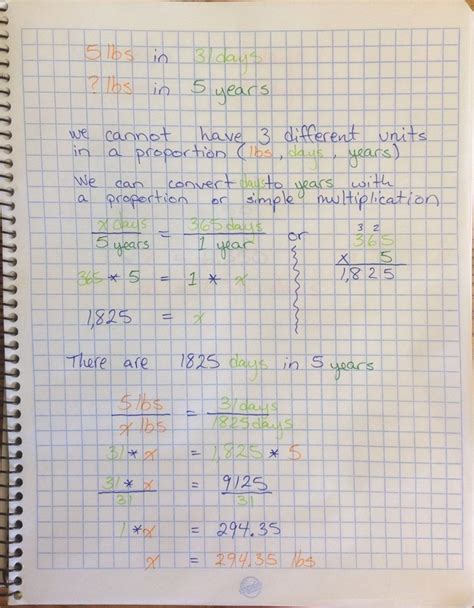 5 lbs in 31 days
? lbs in 5 years
we cannot have 3 different units
in a proportion (lbs, days, years)
We can convert days to years with
a proportion or simple multiplication
x days / 5 years = 365 days / 1 year or
3 2
365
x 5
1,825
365 * 5 = 1 * x
1,825 = x
There are 1825 days in 5 years
5 lbs / x lbs = 31 days / 1825 days
31 * x = 1,825 * 5
31 * x / 31 = 9125 / 31
1 * x = 294.35
x = 294.35 lbs